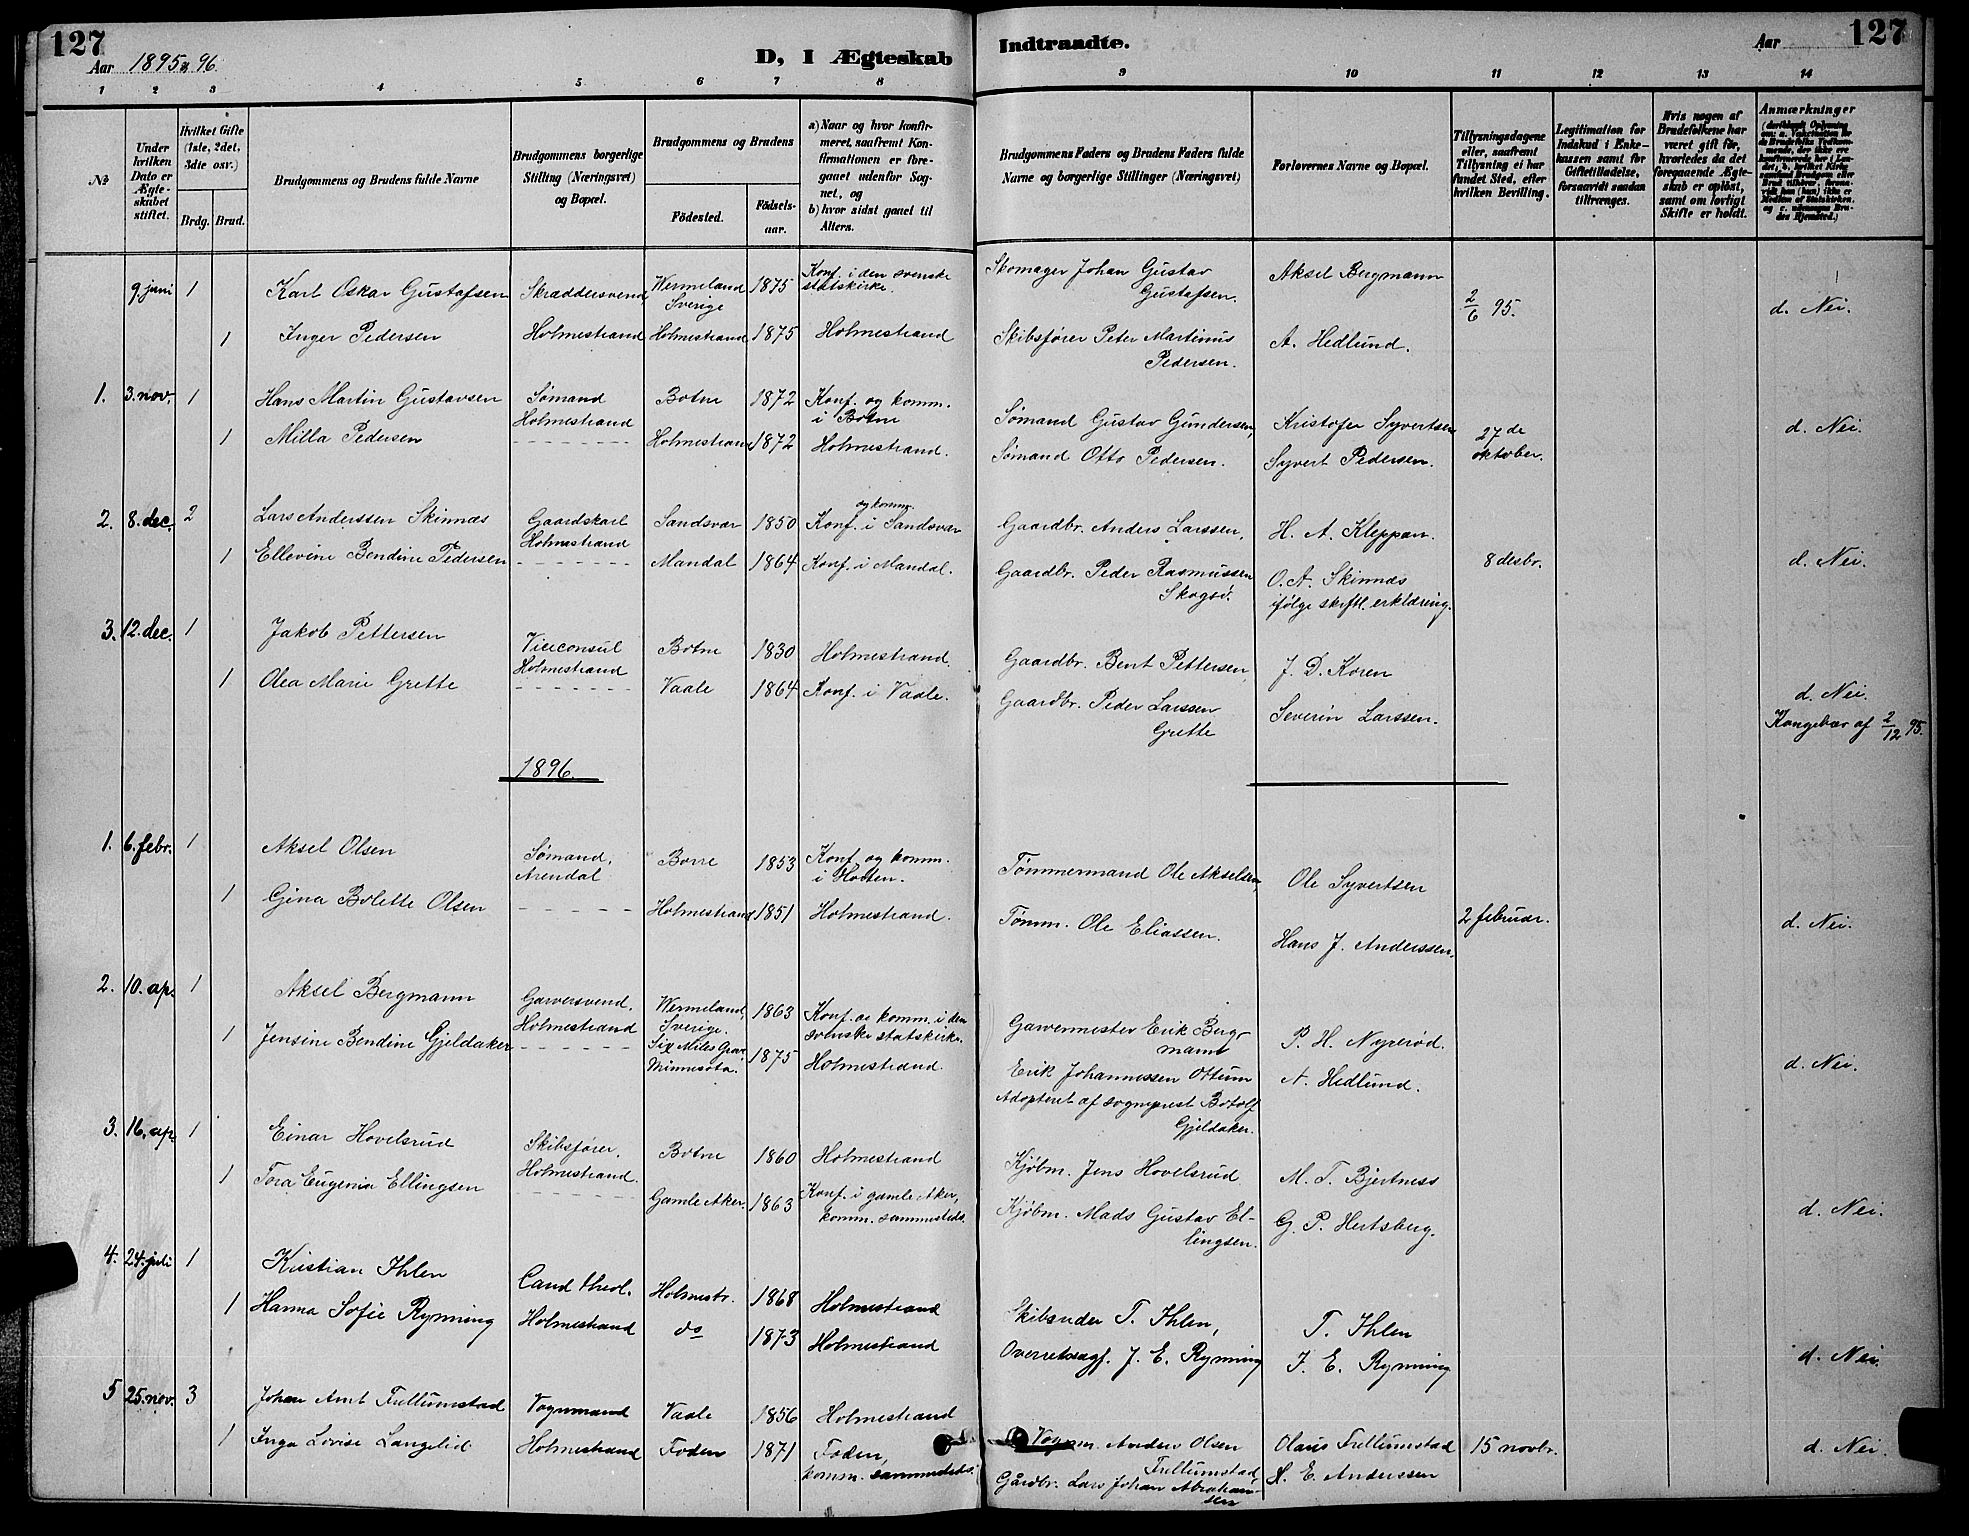 127
Aar 1895 & 96.
D, I Ægteskab Indtraadte.
Aar
127
1 2 3 4 5 6 7 8 9 10 11 12 13 14
№
Under hvilken Dato er Ægteskabet stiftet.
Hvilket Gifte (1ste, 2det, 3die osv.)
Brdg. Brud.
Brudgommens og Brudens fulde Navne
Brudgommens borgerlige Stilling (Næringsvei) og Bopæl.
Brudgommens og Brudens
Födested.
Födselsaar.
a) Naar og hvor konfirmeret, saafremt Konfirmationen er foregaaet udenfor Sognet, og
b) hvor sidst gaaet til Alters.
Brudgommens Faders og Brudens Faders fulde Navne og borgerlige Stillinger (Næringsvei)
Forlovernes Navne og Bopæl.
Tillysningsdagene eller, saafremt Tillysning ei har fundet Sted, efter hvilken Bevilling.
Legitimation for Indskud i Enkekassen samt for Giftetilladelse, forsaavidt saadan tiltrænges.
Hvis nogen af Brudefolkene har været gift før, hvorledes da det foregaaende Ægteskab er opløst, samt om lovligt Skifte er holdt.
Anmærkninger
9. juni 1 Karl Oskar Gustafsen Skræddersvend, Wermeland Sverige 1875 Konf. i den svenske statskirke. Skomager Johan Gustav Gustafsen. Aksel Bergmann 2/6 95. d. Nei.
1 Inger Pedersen Holmestrand Holmestrand 1875 Holmestrand Skibsfører Peter Martinus Pedersen. A. Hedlund.
1. 3. nov. 1 Hans Martin Gustavsen Sømand Holmestrand Botne 1872 Konf. og komm. i Botne Sømand Gustav Gundersen, Kristofer Syvertsen 27de oktober. d. Nei.
1 Milla Pedersen Holmestrand 1872 Holmestrand. Sømand Otto Pedersen. Syvert Pedersen.
2. 8. dec. 2 Lars Anderssen Skinnæs Gaardskarl Holmestrand Sandsvær 1850 Konf. og komm. i Sandsvær Gaardbr. Anders Larssen, H. A. Kleppan. 8 desbr. d. Nei.
1 Ellevine Bendine Pedersen Mandal 1864 Konf. i Mandal. Gaardbr. Peder Rasmussen Skogsö. O. A. Skinnæs ifølge skriftl. erklæring.
3. 12. dec. 1 Jakob Pettersen Viceconsul Holmestrand Botne 1830 Holmestrand. Gaardbr. Bent Pettersen, J. D. Koren
1 Olea Marie Grette Vaale 1864 Konf. i Vaale. Gaardbr. Peder Larssen Grette Severin Larssen. d. Nei. Kongebev af 2/12 95.
1896.
1. 6. febr. 1 Aksel Olsen Sømand, Arendal Borre 1853 Konf. og komm. i Horten. Tømmermand Ole Akselsen, Ole Syvertsen 2 februar. d. Nei.
1 Gina Bolette Olsen Holmestrand 1851 Holmestrand. Tømm. Ole Eliassen. Hans J. Anderssen.
2. 10. ap. 1 Aksel Bergmann Garversvend, Holmestrand Wermeland, Sverige. 1863 Konf. og komm. i den svenske statskirke. Garvermester Erik Bergmann P. H. Nyrerød.
1 Jensine Bendine Gjeldaker Six Miles Grov, Minnesota. 1875 Holmestrand. Erik Johannessen Ottum Adopteret af sogneprest Botolf Gjeldaker. A. Hedlund. d. Nei.
3. 16. ap. 1 Einar Hovelsrud Skibsfører. Holmestrand. Botne 1860 Holmestrand Kjøbm. Jens Hovelsrud M. T. Bjertness
1 Tora Eugenia Ellingsen Gamle Aker. 1863 Konf. i gamle Aker, komm. sammesteds. Kjøbm. Mads Gustav Ellingsen. G. P. Hertsberg. d. Nei.
4. 24. juli 1 Kristian Ihlen Cand theol. Holmestr. 1868 Holmestrand Skibsreder T. Ihlen, T. Ihlen
1 Hanna Sofie Rynning Holmestrand do 1873 Holmestrand Overretssagf. J. E. Rynning J. E. Rynning d. Nei.
5 25. nov. 3 Johan Amt Trellumstad Vognmand Vaale 1856 Holmestrand Vognm. Anders Olsen Trellumstad, Olaus Trellumstad 15 novbr. d. Nei.
1 Inga Lovise Langelid Holmestrand Foden 1871 Foden, komm. sammesteds. Gårdbr. Lars Johan Abrahamsen A. E. Anderssen